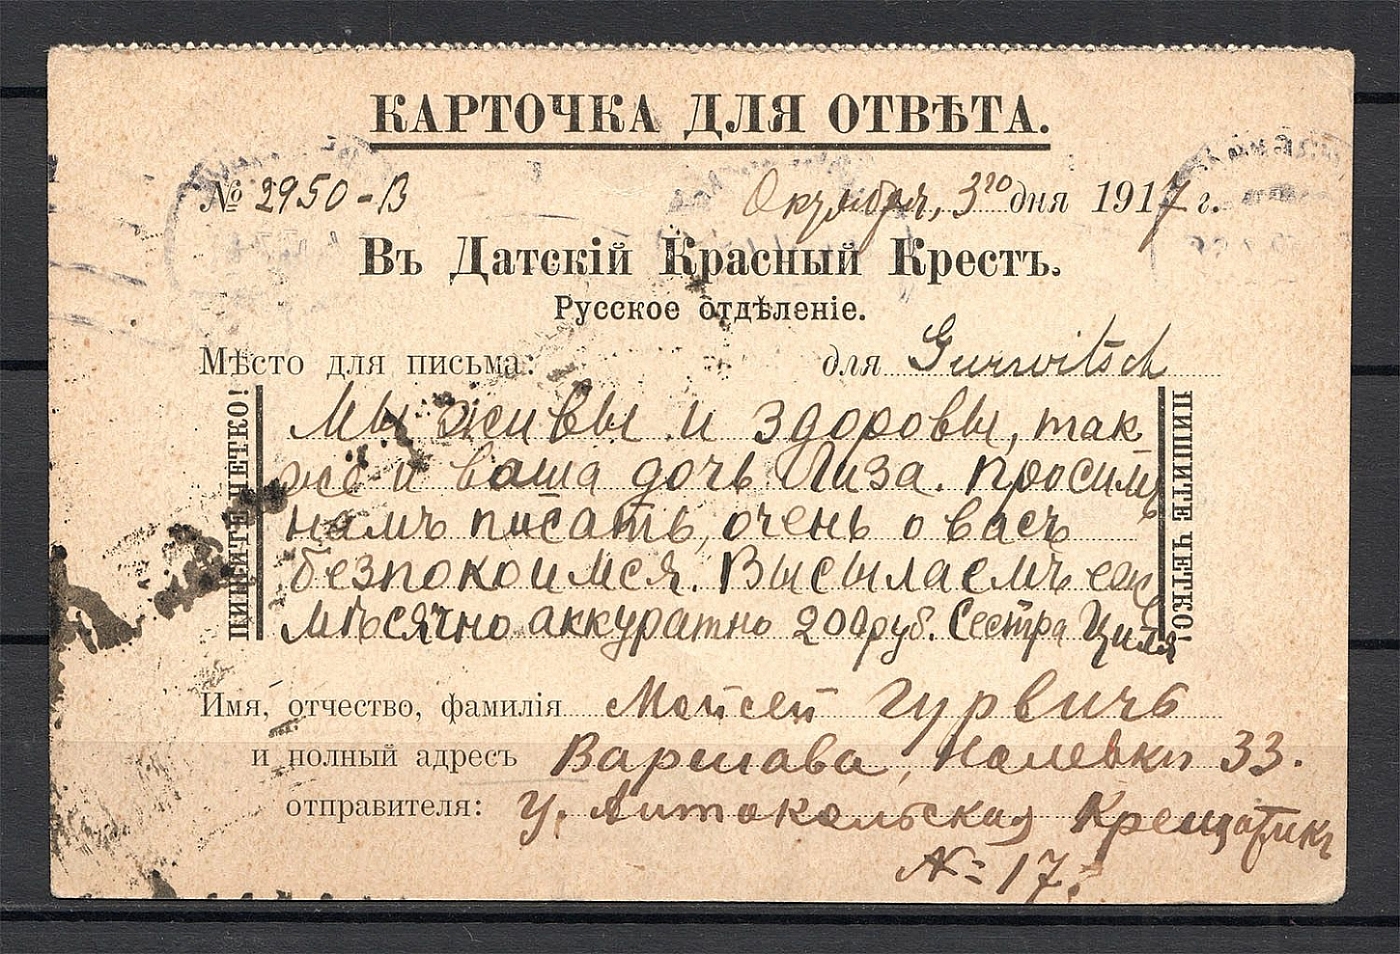 КАРТОЧКА ДЛЯ ОТВѢТА.
№ 2950-В Октября, 3го дня 1917 г.
Въ Датскій Красный Крестъ.
Русское отдѣленіе.
Мѣсто для письма: для Gurwitsch
ПИШИТЕ ЧЕТКО!
Мы живы и здоровы, так
же и ваша дочь Лиза. Просимъ
намъ писать, очень о васъ
безпокоимся. Высылаемъ еже
мѣсячно аккуратно 200 руб. Сестра Циля
ПИШИТЕ ЧЕТКО!
Имя, отчество, фамилія Мойсей Гурвичъ
и полный адресъ Варшава, Налевки 33.
отправителя: У. Антокольская Крещатик
№ 17.